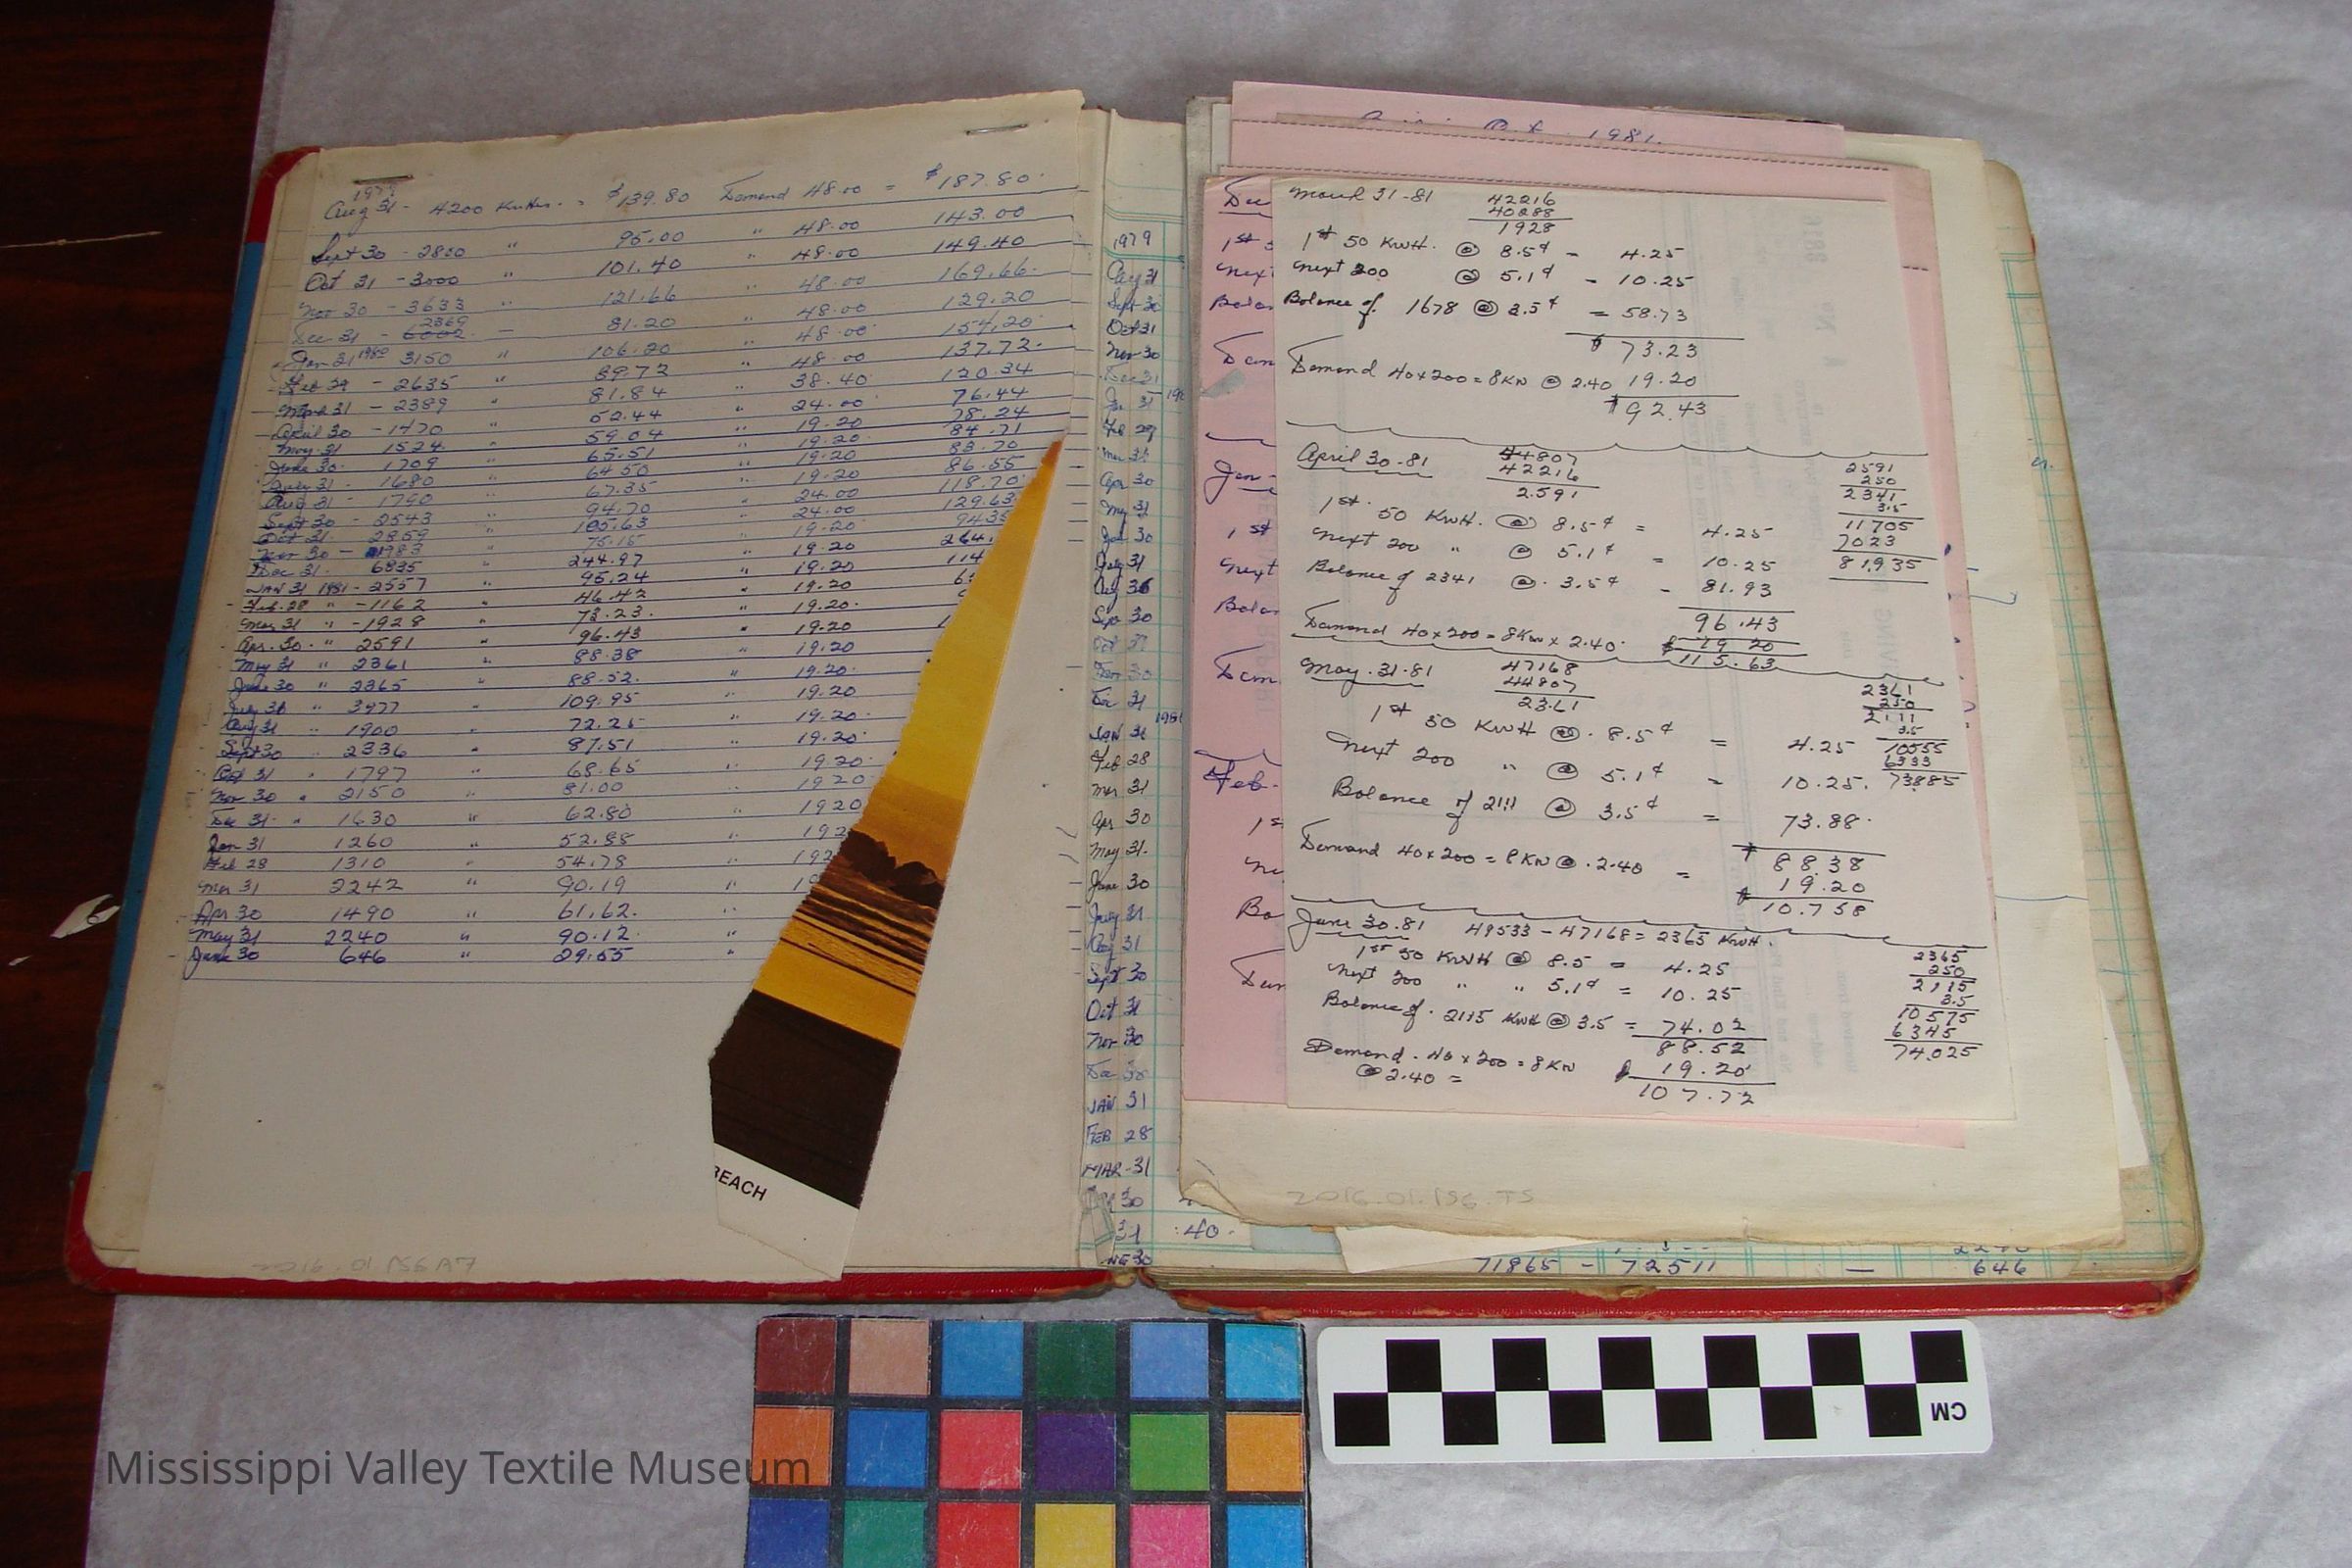 1979
Aug 31 - 4200 Kwhrs. = $139.80 Demand 48.00 = $187.80.
Sept 30 - 2800 " 95.00 " 48.00 143.00
Oct 31 - 3000 " 101.40 " 48.00 149.40
Nov 30 - 3633 " 121.66 " 48.00 169.66.
2369
Dec 31 - 6002. - 81.20 " 48.00 129.20
Jan 31 1980 3150 " 106.20 " 48.00 154.20
Feb 29 - 2635 " 89.72 " 48.00 137.72.
Mar 31 - 2389 " 81.84 " 38.40 120.34
April 30 - 1470 " 52.44 " 24.00 76.44
May 31 1524. " 59.04 " 19.20 78.24
June 30. 1709 " 65.51 " 19.20 84.71
July 31 - 1680 " 64.50 " 19.20 83.70
Aug 31 - 1760 " 67.35 " 19.20 86.55
Sept 30 - 2543 " 94.70 " 24.00 118.70
Oct 31. 2859 " 105.63 " 24.00 129.63
Nov 30 - 1983 " 75.15 " 19.20 94.35
Dec 31. 6835 " 244.97 " 19.20 264.
JAN 31 1981 - 2557 " 95.24 " 19.20 114
Feb. 28 " - 1162 " 46.42 " 19.20
Mar 31 " - 1928 " 73.23. " 19.20.
Apr. 30. " 2591 " 96.43 " 19.20
May 31 " 2361 " 88.38 19.20
June 30 " 2365 " 88.52. " 19.20.
July 31 " 3977 " 109.95 " 19.20
Aug 31 " 1900 " 72.25 " 19.20.
Sept 30 " 2336 " 87.51 " 19.20.
Oct 31 " 1797 " 68.65 " 19.20.
Nov 30 " 2150 " 81.00 " 1920
Dec 31. " 1630 " 62.80 " 1920
Jan 31 1260 " 52.88 " 192
Feb 28 1310 " 54.78 " 192
Mar 31 2242 " 90.19 "
Apr 30 1490 " 61.62. "
May 31 2240 " 90.12. "
June 30 646 " 29.55 "
BEACH
1979
Aug 31
Sept 30
Oct 31
Nov 30
Dec 31
Jan 31
Feb 29
Mar 31
Apr 30
May 31
Jun 30
July 31
Aug 31
Sept 30
Oct 31
Nov 30
Dec 31
1981
JAN 31
Feb 28
Mar 31
Apr 30
May 31.
June 30
July 31
Aug 31
Sept 30
Oct 31
Nov 30
Dec 30
JAN 31
FEB 28
MAR-31
30
31 .40.
NE 30
1981.
Dec
1st
next
Balan
Dem
Jan
1st
next
Balan
Dem
Feb.
1st
ne
Ba
Dem
March 31-81 42216
40288
1928
1st 50 KWH. @ 8.5¢ - 4.25
next 200 @ 5.1¢ - 10.25
Balance of. 1678 @ 3.5¢ = 58.73
$ 73.23
Demand 40x200 = 8KW @ 2.40 19.20
$ 92.43
April 30.81 44807
42216
2.591
1st. 50 KWH. @ 8.5¢ = 4.25
next 200 " @ 5.1¢ = 10.25
Balance of 2341 @. 3.5¢ - 81.93
96.43
Demand 40x200 = 8KW x 2.40. $ 19 20
115.63
2591
250
2341
3.5
11705
7023
81935
May. 31.81 47168
44807
2361
1st 50 KWH @. 8.5¢ = 4.25
next 200 " @ 5.1¢ = 10.25.
Balance of 2111 @ 3.5¢ = 73.88.
$ 88.38
Demand 40x200 = 8KW @. 2.40 = $ 19.20
10.758
2361
250
2111
3.5
10555
6333
73885
June 30.81 49533 - 47168 = 2365 KWH.
1st 50 KWH @ 8.5 = 4.25
next 200 " " 5.1¢ = 10.25
Balance of. 2115 KWH @ 3.5 = 74.02
88.52
Demand. 40x200 = 8KW $ 19.20
@ 2.40 = 107.72
2365
250
2115
3.5
10575
6345
74.025
2016.01.156.T5
2240
71865 - 72511 — 646
2016.01.156A7
CM
Mississippi Valley Textile Museum